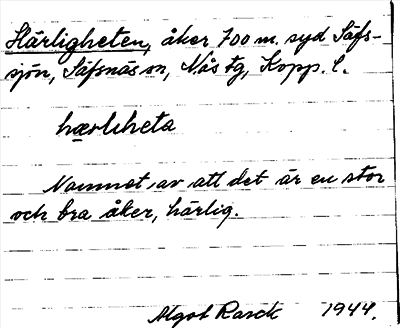 Härligheten, åker 700 m. syd Säfs-
sjön, Säfsnäs sn, Nås tg, Kopp. l.
hærlıheta
Namnet av att det är en stor
och bra åker, härlig.
Algot Rasck 1944.